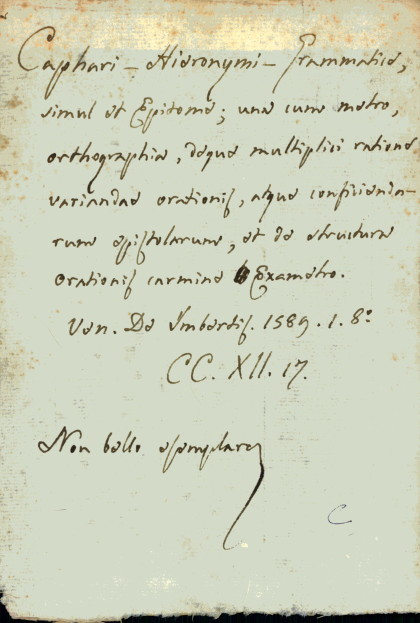 Caphari - Hieronymi - Grammatice,
simul et Epitome; una cum metro,
orthographia, deque multiplici ratione
variandae orationis, atque conficienda-
rum epistolarum, et de structura
orationis carmine Exametro.
Ven. De Imbertis. 1589. 1. 8º
CC. XII. 17.
Non bello esemplare
C